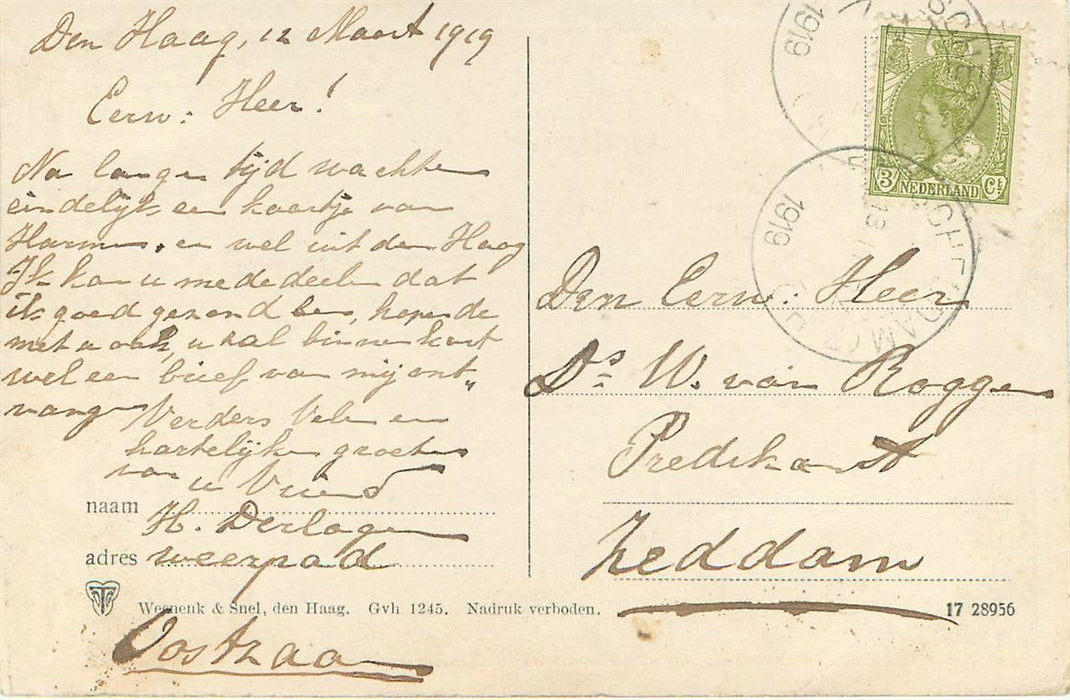 Den Haag, 12 Maart 1919
Eerw: Heer!
Na lange tijd wachten
eindelijk een kaartje van
Harmen, en wel uit den Haag
Ik kan u mededeelen dat
ik goed gezond ben, hopende
met u ook, u zal binnen kort
wel een brief van mij ont„
vangen
Verders Vele en
hartelijke groeten
van u Vriend
naam H. Derlagen
adres weerpad
Oostzaan
Weenenk & Snel, den Haag. Gvh 1245. Nadruk verboden.
17 28956
3 NEDERLAND Ct
1919
1919
Den Eerw: Heer
Ds W. van Roggen
Predikant
Zeddam